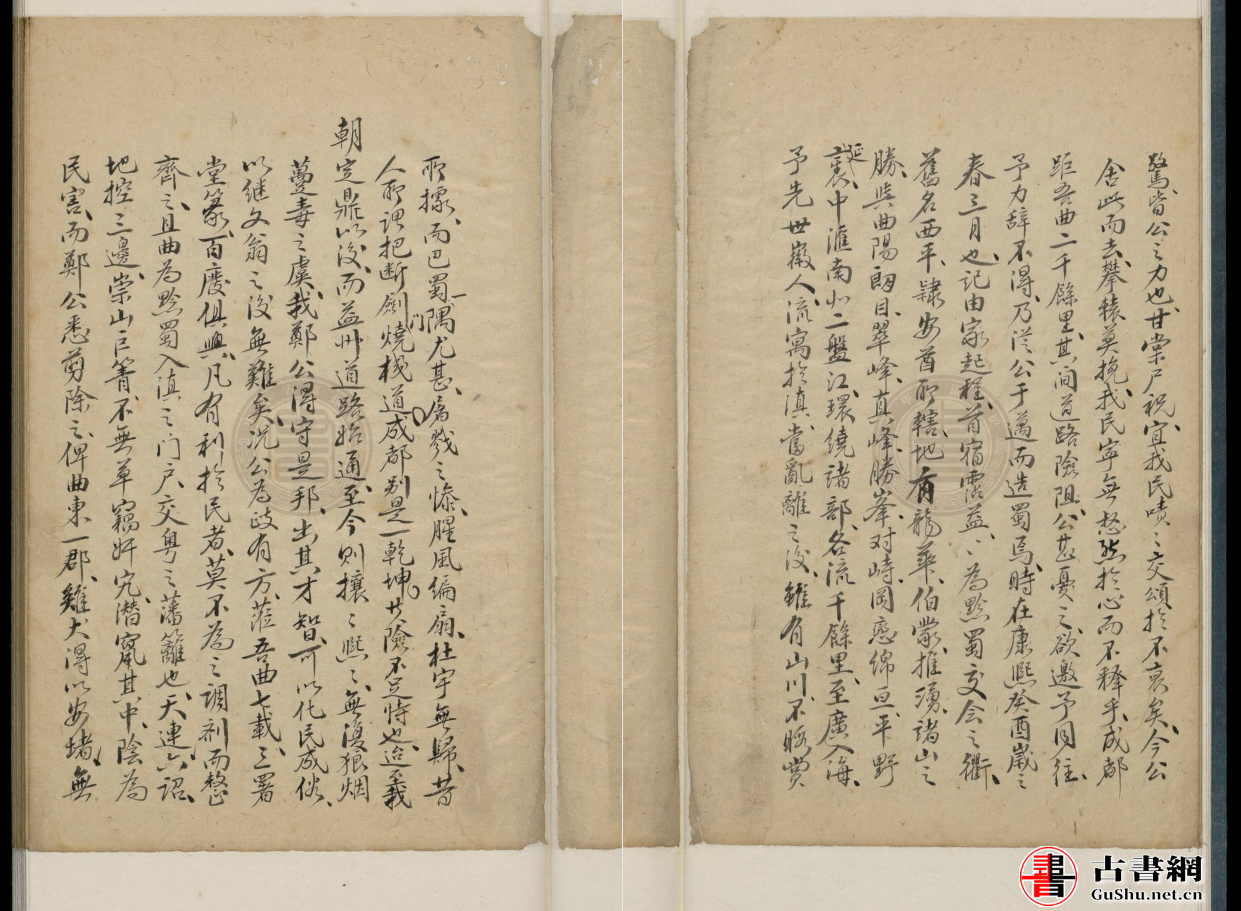 驚、皆公之力也、甘棠尸祝、宜我民嘖〻交頌於不衰矣、今公
舍此而去、攀轅莫挽、我民寧無愁然於心而不釋乎、成都
距吾曲二千餘里、其间道路險阻、公甚憂之、欲邀予同往、
予力辞不淂、乃從公于邁而造蜀焉、時在康熙癸酉嵗之
春三月也、記由家起程、首宿霑益、〻為黔蜀交会之衢、
舊名西平、隷安酋所轄、地有龍華、伯蒙推湧、諸山之
勝、與曲陽朗目、翠峰、真峰、勝峯、对峙岡巒綿亘、平野
延袤、中滙南北二盤江、環繞諸部、各流千餘里、至廣入海、
予先世徽人、流寓於滇、當亂離之後、雖有山川、不暇賞
所據、而巴蜀一隅尤甚、屠戮之慘、腥風徧扇、杜宇無歸、昔
人所谓把断劍门燒棧道、成都别是一乾坤、其險不足恃也、迨義
朝定鼎以後、而益州道路始通、至今則攘〻熙〻、無復狼烟
蠆毒之虞、我鄭公得守是邦、出其才智、可以化民成俗、
以继文翁之後無難矣、况公為政有方、蒞吾曲七載、三署
堂篆、百廢俱興、凡有利於民者、莫不為之調剤而整
齊之、且曲為黔蜀入滇之门户、交粤之藩籬也、天連六詔、
地控三邊、崇山巨箐、不無草竊奸宄潛窜其中、陰為
民害、而鄭公悉剪除之、俾曲東一郡、雞犬淂以安堵、無
古書網
GuShu.net.cn